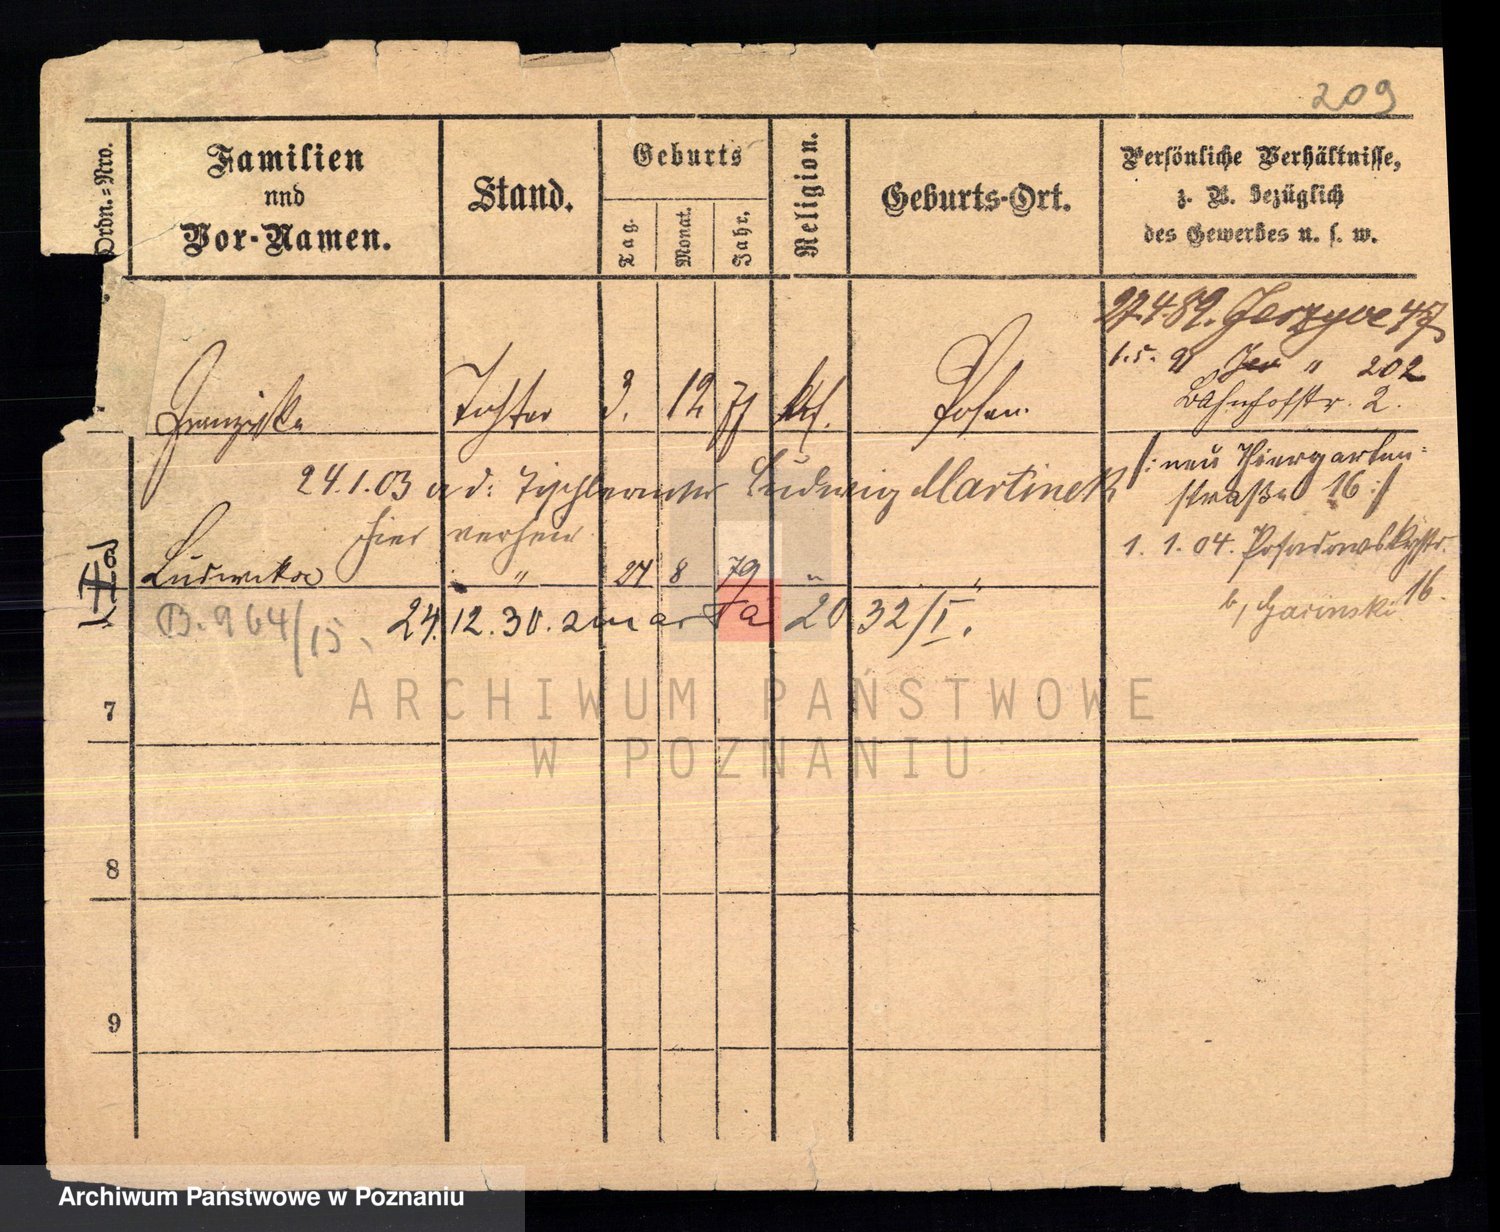 209
Ordn.=Nro.
Familien
und
Vor-Namen.
Stand.
Geburts
Tag.
Monat.
Jahr.
Religion.
Geburts-Ort.
Persönliche Verhältnisse,
z. B. bezüglich
des Gewerbes u. s. w.
27.4.89. Jerzyce 47
1.5. 91 Jer " 202
Bahnhofstr. 2.
Franziska Tochter 3. 12 77 kth. Posen.
/: neu Thiergarten-
straße 16 :/
24.1.03 a d: Tischlermstr Ludwig Martinek
hier verheir.
1. 1. 04. Posadowskystr.
16.
Ludwika " 27 8 79 " "
b/ Garinski
B. 964/15. 24.12.30. zmarła 20 32/I.
7
8
9
ARCHIWUM PAŃSTWOWE
W POZNANIU
Archiwum Państwowe w Poznaniu